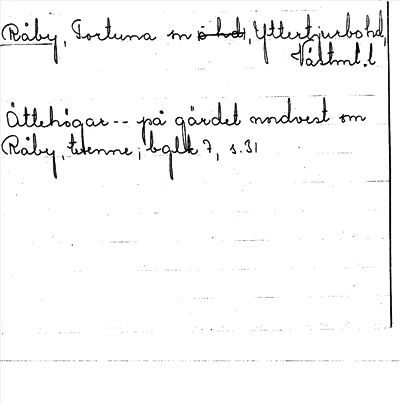 Råby, Fortuna sn o hd, Yttertjurbo hd,
Västml. l
Ättehögar -- på gärdet nordvest om
Råby, tvenne; bglk 7, s. 31